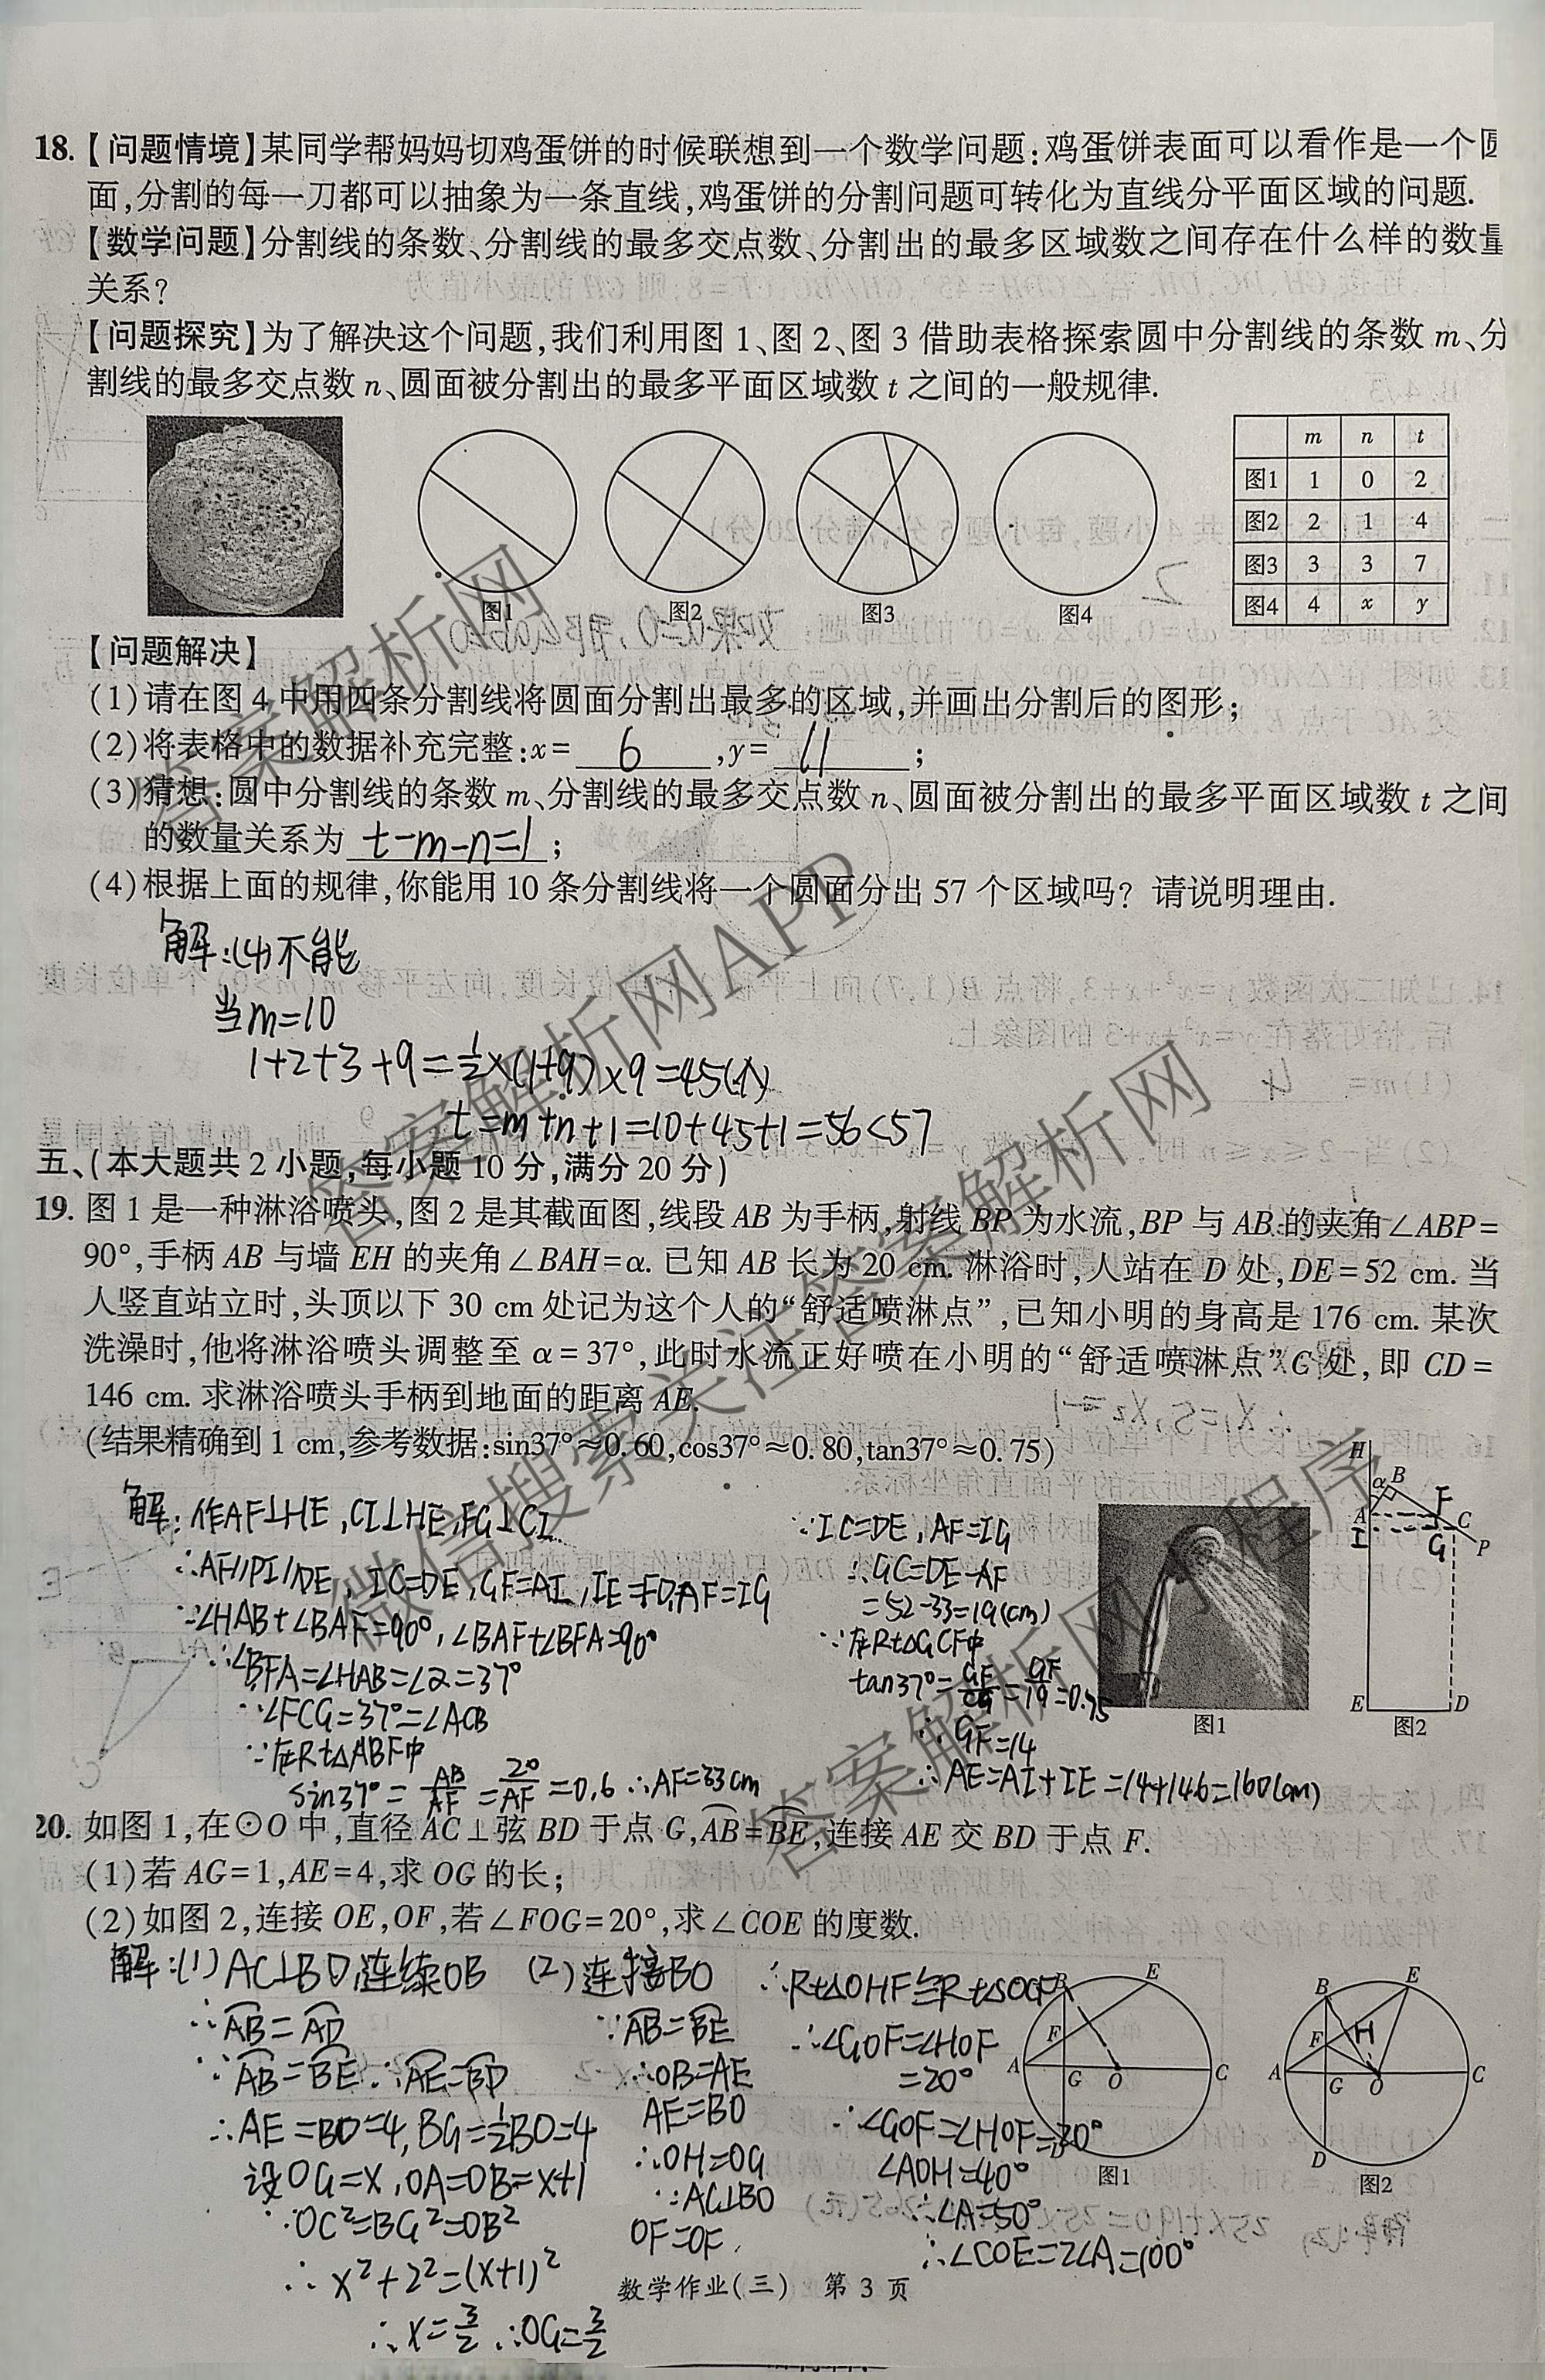 18.【问题情境】某同学帮妈妈切鸡蛋饼的时候联想到一个数学问题:鸡蛋饼表面可以看作是一个圆
面,分割的每一刀都可以抽象为一条直线,鸡蛋饼的分割问题可转化为直线分平面区域的问题.
【数学问题】分割线的条数、分割线的最多交点数、分割出的最多区域数之间存在什么样的数量
关系?
【问题探究】为了解决这个问题,我们利用图 1、图 2、图 3 借助表格探索圆中分割线的条数 m、分
割线的最多交点数 n、圆面被分割出的最多平面区域数 t 之间的一般规律.
图1 图2 图3 图4
m n t
图1 1 0 2
图2 2 1 4
图3 3 3 7
图4 4 x y
【问题解决】
(1)请在图 4 中用四条分割线将圆面分割出最多的区域,并画出分割后的图形;
(2)将表格中的数据补充完整:x= 6 ,y= 11 ;
(3)猜想:圆中分割线的条数 m、分割线的最多交点数 n、圆面被分割出的最多平面区域数 t 之间
的数量关系为 t-m-n=1 ;
(4)根据上面的规律,你能用 10 条分割线将一个圆面分出 57 个区域吗? 请说明理由.
解:(4)不能
当m=10
1+2+3+9=½×(1+9)×9=45(个)
t=m+n+1=10+45+1=56<57
五、(本大题共 2 小题,每小题 10 分,满分 20 分)
19. 图 1 是一种淋浴喷头,图 2 是其截面图,线段 AB 为手柄,射线 BP 为水流,BP 与 AB 的夹角∠ABP=
90°,手柄 AB 与墙 EH 的夹角∠BAH=α. 已知 AB 长为 20 cm. 淋浴时,人站在 D 处,DE=52 cm. 当
人竖直站立时,头顶以下 30 cm 处记为这个人的“舒适喷淋点”,已知小明的身高是 176 cm. 某次
洗澡时,他将淋浴喷头调整至 α=37°,此时水流正好喷在小明的“舒适喷淋点”C 处,即 CD=
146 cm. 求淋浴喷头手柄到地面的距离 AE.
(结果精确到 1 cm,参考数据:sin37°≈0.60,cos37°≈0.80,tan37°≈0.75)
解:作AF⊥HE,CI⊥HE,FG⊥CI
∴AF//PI//DE, IC=DE,GF=AI,IE=FD,AF=IG
∵∠HAB+∠BAF=90°,∠BAF+∠BFA=90°
∴∠BFA=∠HAB=∠α=37°
∴∠FCG=37°=∠ACB
∵在Rt△ABF中
sin37°=AB/AF=20/AF=0.6 ∴AF=33cm
∵IC=DE,AF=IG
∴GC=DE-AF
=52-33=19(cm)
∵在Rt△GCF中
tan37°=GF/CG=GF/19=0.75
∴GF=14
∴AE=AI+IE=14+146=160(cm)
图1
H α B F A C I G P E D
图2
20. 如图 1,在⊙O 中,直径 AC⊥弦 BD 于点 G,AB=BE,连接 AE 交 BD 于点 F.
(1)若 AG=1,AE=4,求 OG 的长;
(2)如图 2,连接 OE,OF,若∠FOG=20°,求∠COE 的度数.
解:(1)AC⊥BD,连续OB
∴AB=AD
∵AB=BE∴AE=BD
∴AE=BD=4,BG=½BD=4
设OG=x,OA=OB=x+1
∵OC²=BG²=OB²
∴x²+2²=(x+1)²
∴x=3/2 ∴OG=3/2
(2)连接BO
∵AB=BE
∴OB=AE
AE=BO
∴OH=OG
∵AC⊥BO
OF=OF,
∴Rt△OHF≌Rt△OGF
∴∠GOF=∠HOF
=20°
∵∠GOF=∠HOF=30°
∠AOH=40°
∴∠A=50°
∴∠COE=2∠A=100°
B E F A G O C D
图1
B E F H A G O C D
图2
数学作业(三) 第 3 页
答案解析网
答案解析网APP
微信搜索关注答案解析网
答案解析网小程序